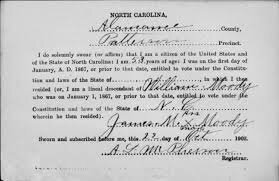 NORTH CAROLINA,
Alamance County,
Patterson Precinct.
I do solemnly swear (or affirm) that I am a citizen of the United States and
of the State of North Carolina; I am 53 years of age: I was on the first day of
January, A. D. 1867, or prior to that date, entitled to vote under the Constitution
and Laws of the State of in which I then
resided (or, I am a lineal descendant of William Moody
who was on January 1, 1867, or prior to that date, entitled to vote under the
Constitution and laws of the State of N. C.
wherein he then resided).
his
James M. X Moody
mark
Sworn and subscribed before me, this 23 day of Oct 1902.
Registrar.